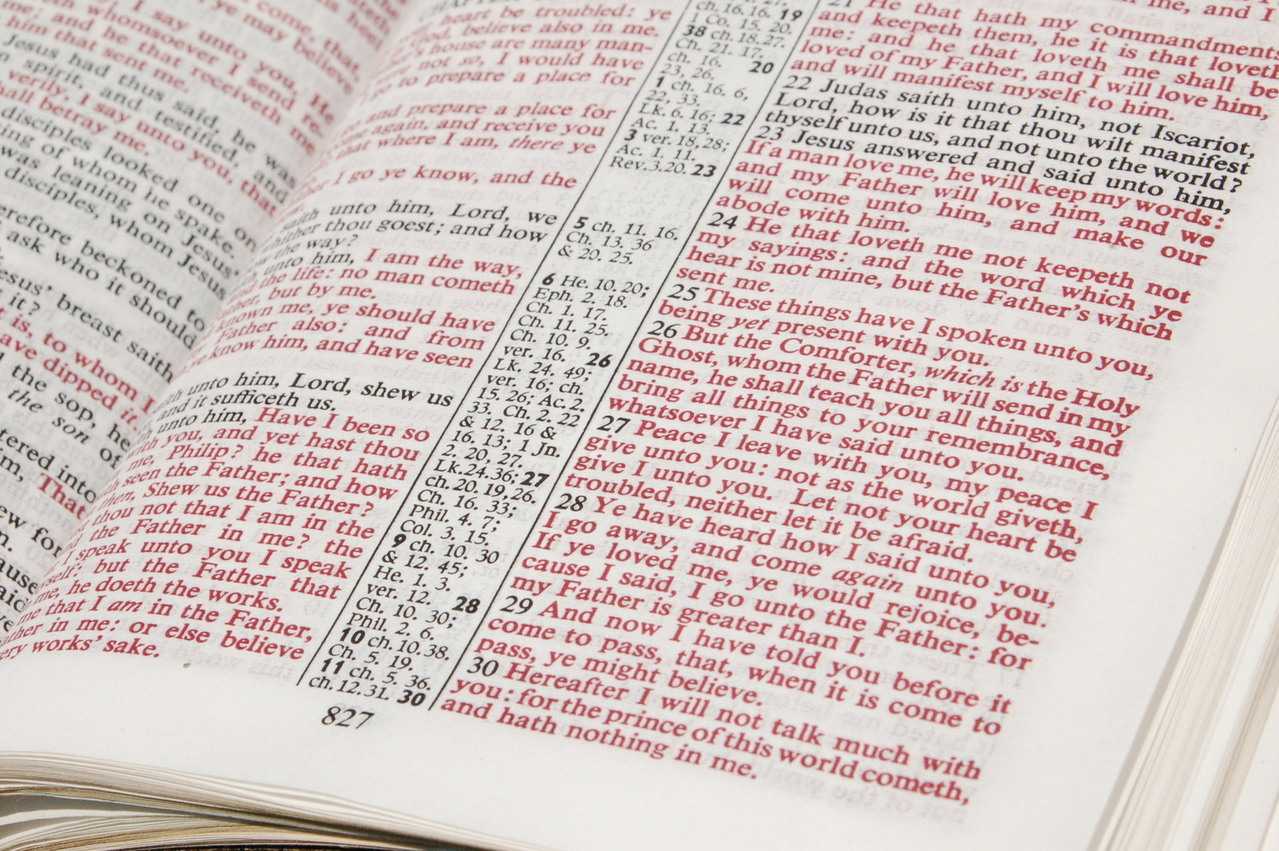 I say unto you, He
whomsoever I send re-
and he that receiveth me
him that sent me.
Jesus had thus said, he was
spirit, and testified, and
verily, I say unto you, that
shall betray me.
disciples looked one on
of whom he spake.
was leaning on Jesus'
disciples, whom Jesus
beckoned to
ask who it should
breast saith
it?
is, to whom I
have dipped it.
the sop, he
the son of
into
That
heart be troubled: ye
God, believe also in me.
house are many man-
not so, I would have
to prepare a place for
and prepare a place for
come again, and receive you
that where I am, there ye
I go ye know, and the
saith unto him, Lord, we
whither thou goest; and how
the way?
unto him, I am the way,
the life: no man cometh
but by me.
known me, ye should have
Father also: and from
know him, and have seen
unto him, Lord, shew us
and it sufficeth us.
unto him, Have I been so
with you, and yet hast thou
me, Philip? he that hath
seen the Father; and how
then, Shew us the Father?
thou not that I am in the
the Father in me? the
I speak unto you I speak
but the Father that
me, he doeth the works.
me that I am in the Father,
in me: or else believe
very works' sake.
ch. 16. 16. 19
1 Co. 15. 20.
38 ch. 18. 27.
Ch. 21. 17.
ch. 16. 20
23, 26.
1 ch. 16. 6,
22, 33.
Lk. 6. 16; 22
Ac. 1. 13.
3 ver. 18, 28;
Ac. 1. 11.
Rev. 3. 20. 23
5 ch. 11. 16.
Ch. 13. 36
& 20. 25.
6 He. 10. 20;
Eph. 2. 18.
Ch. 1. 17.
Ch. 11. 25.
Ch. 10. 9,
ver. 16. 26
Lk. 24. 49;
ver. 16; ch.
15. 26; Ac. 2.
33, Ch. 2. 22
& 12. 16 &
16. 13; 1 Jn.
2. 20, 27.
Lk. 24. 36; 27
ch. 20. 19, 26.
Ch. 16. 33;
Phil. 4. 7;
Col. 3. 15.
9 ch. 10. 30
& 12. 45;
He. 1. 3.
ver. 12. 28
Ch. 10. 30;
Phil. 2. 6.
10 ch. 10. 38.
Ch. 5. 19.
11 ch. 5. 36.
ch. 12. 31. 30
827
21 He that hath my commandments,
and keepeth them, he it is that loveth
me: and he that loveth me shall be
loved of my Father, and I will love him,
and will manifest myself to him.
22 Judas saith unto him, not Iscariot,
Lord, how is it that thou wilt manifest
thyself unto us, and not unto the world?
23 Jesus answered and said unto him,
If a man love me, he will keep my words:
and my Father will love him, and we
will come unto him, and make our
abode with him.
24 He that loveth me not keepeth not
my sayings: and the word which ye
hear is not mine, but the Father's which
sent me.
25 These things have I spoken unto you,
being yet present with you.
26 But the Comforter, which is the Holy
Ghost, whom the Father will send in my
name, he shall teach you all things, and
bring all things to your remembrance,
whatsoever I have said unto you.
27 Peace I leave with you, my peace I
give unto you: not as the world giveth,
give I unto you. Let not your heart be
troubled, neither let it be afraid.
28 Ye have heard how I said unto you,
I go away, and come again unto you.
If ye loved me, ye would rejoice, be-
cause I said, I go unto the Father: for
my Father is greater than I.
29 And now I have told you before it
come to pass, that, when it is come to
pass, ye might believe.
30 Hereafter I will not talk much with
you: for the prince of this world cometh,
and hath nothing in me.